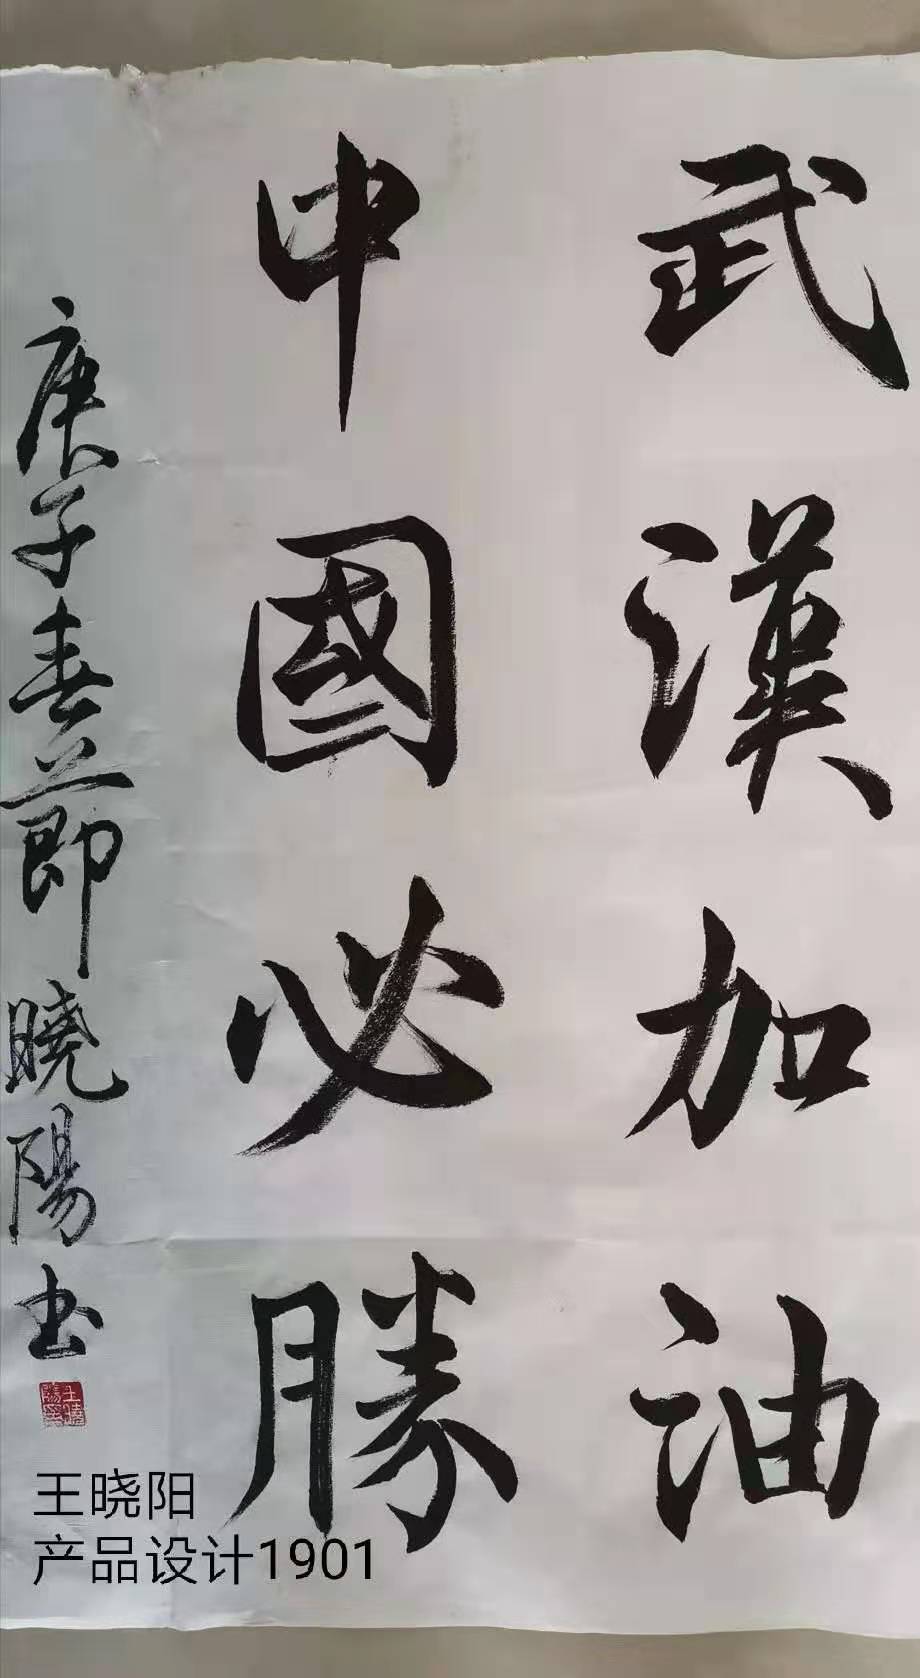 武漢加油
中國必勝
庚子春節 曉陽书
王曉陽璽
王晓阳
产品设计1901